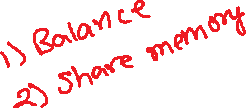 1) Balance
2) Share memory